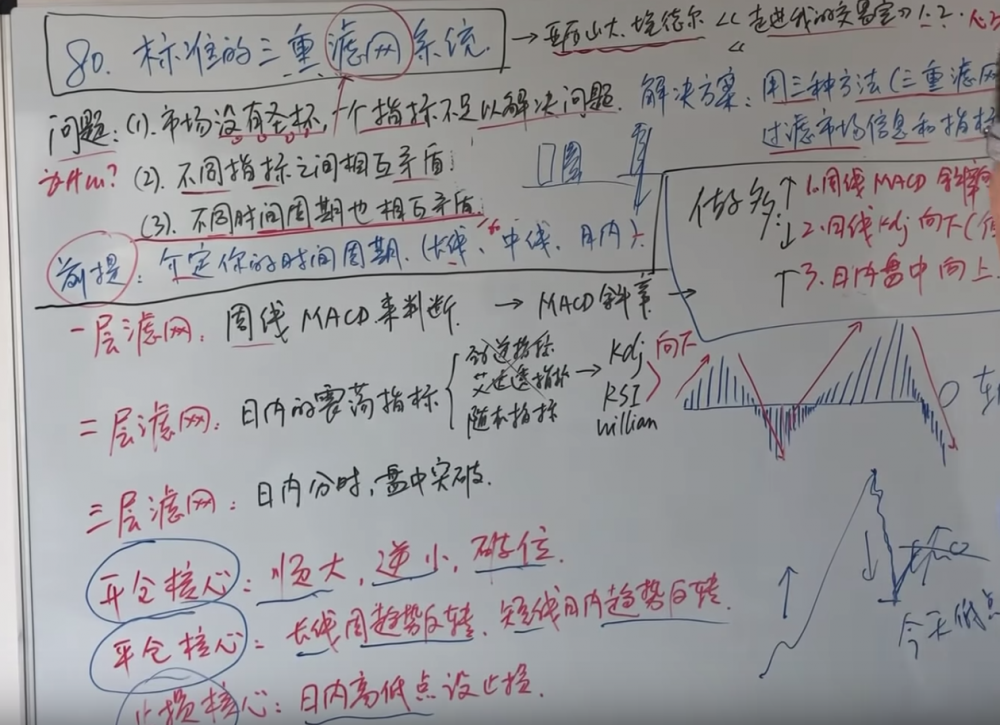 80. 标准的三重滤网系统. → 亚历山大.埃德尔《走进我的交易室》1.2.
问题: (1). 市场没有圣杯, 一个指标不足以解决问题. 解决方案: 用三种方法(三重滤网
过滤市场信息和指标
(2). 不同指标之间相互矛盾.
(3). 不同时间周期也相互矛盾.
前提: 介定你的时间周期. (长线、中线、日内).
做多 ↑ 1.周线MACD 斜率
↓ 2.日线Kdj 向下(
↑ 3.日内盘中向上
一层滤网: 周线MACD来判断. → MACD斜率 →
二层滤网: 日内的震荡指标
劲道指标
艾达透指标
随机指标
→ Kdj 向下
RSI
Willian
三层滤网: 日内分时, 盘中突破.
平仓核心: 顺大, 逆小, 破位.
平仓核心: 长线周趋势反转. 短线日内趋势反转.
止损核心: 日内高低点设止损.
今天低点